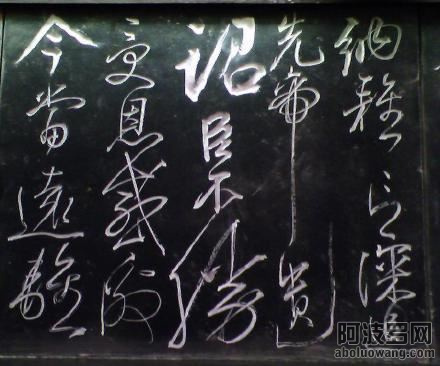 納雅言深追
先帝遺
詔臣不勝
受恩感激
今當遠離
阿波罗网
aboluowang.com